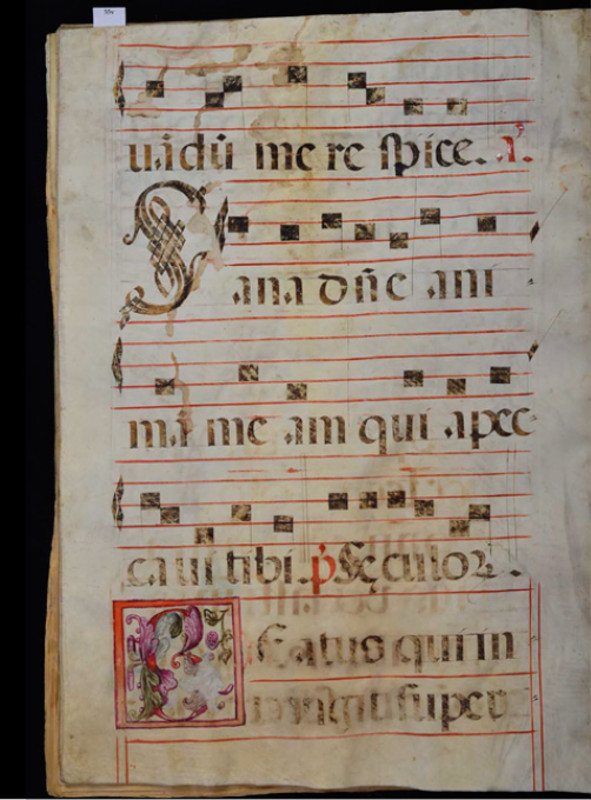 uidū me re spice. a.
Sana dñe ani
ma me am qui a pec
ca ui tibi. p̄ Sęculor.
Beatus qui in
super